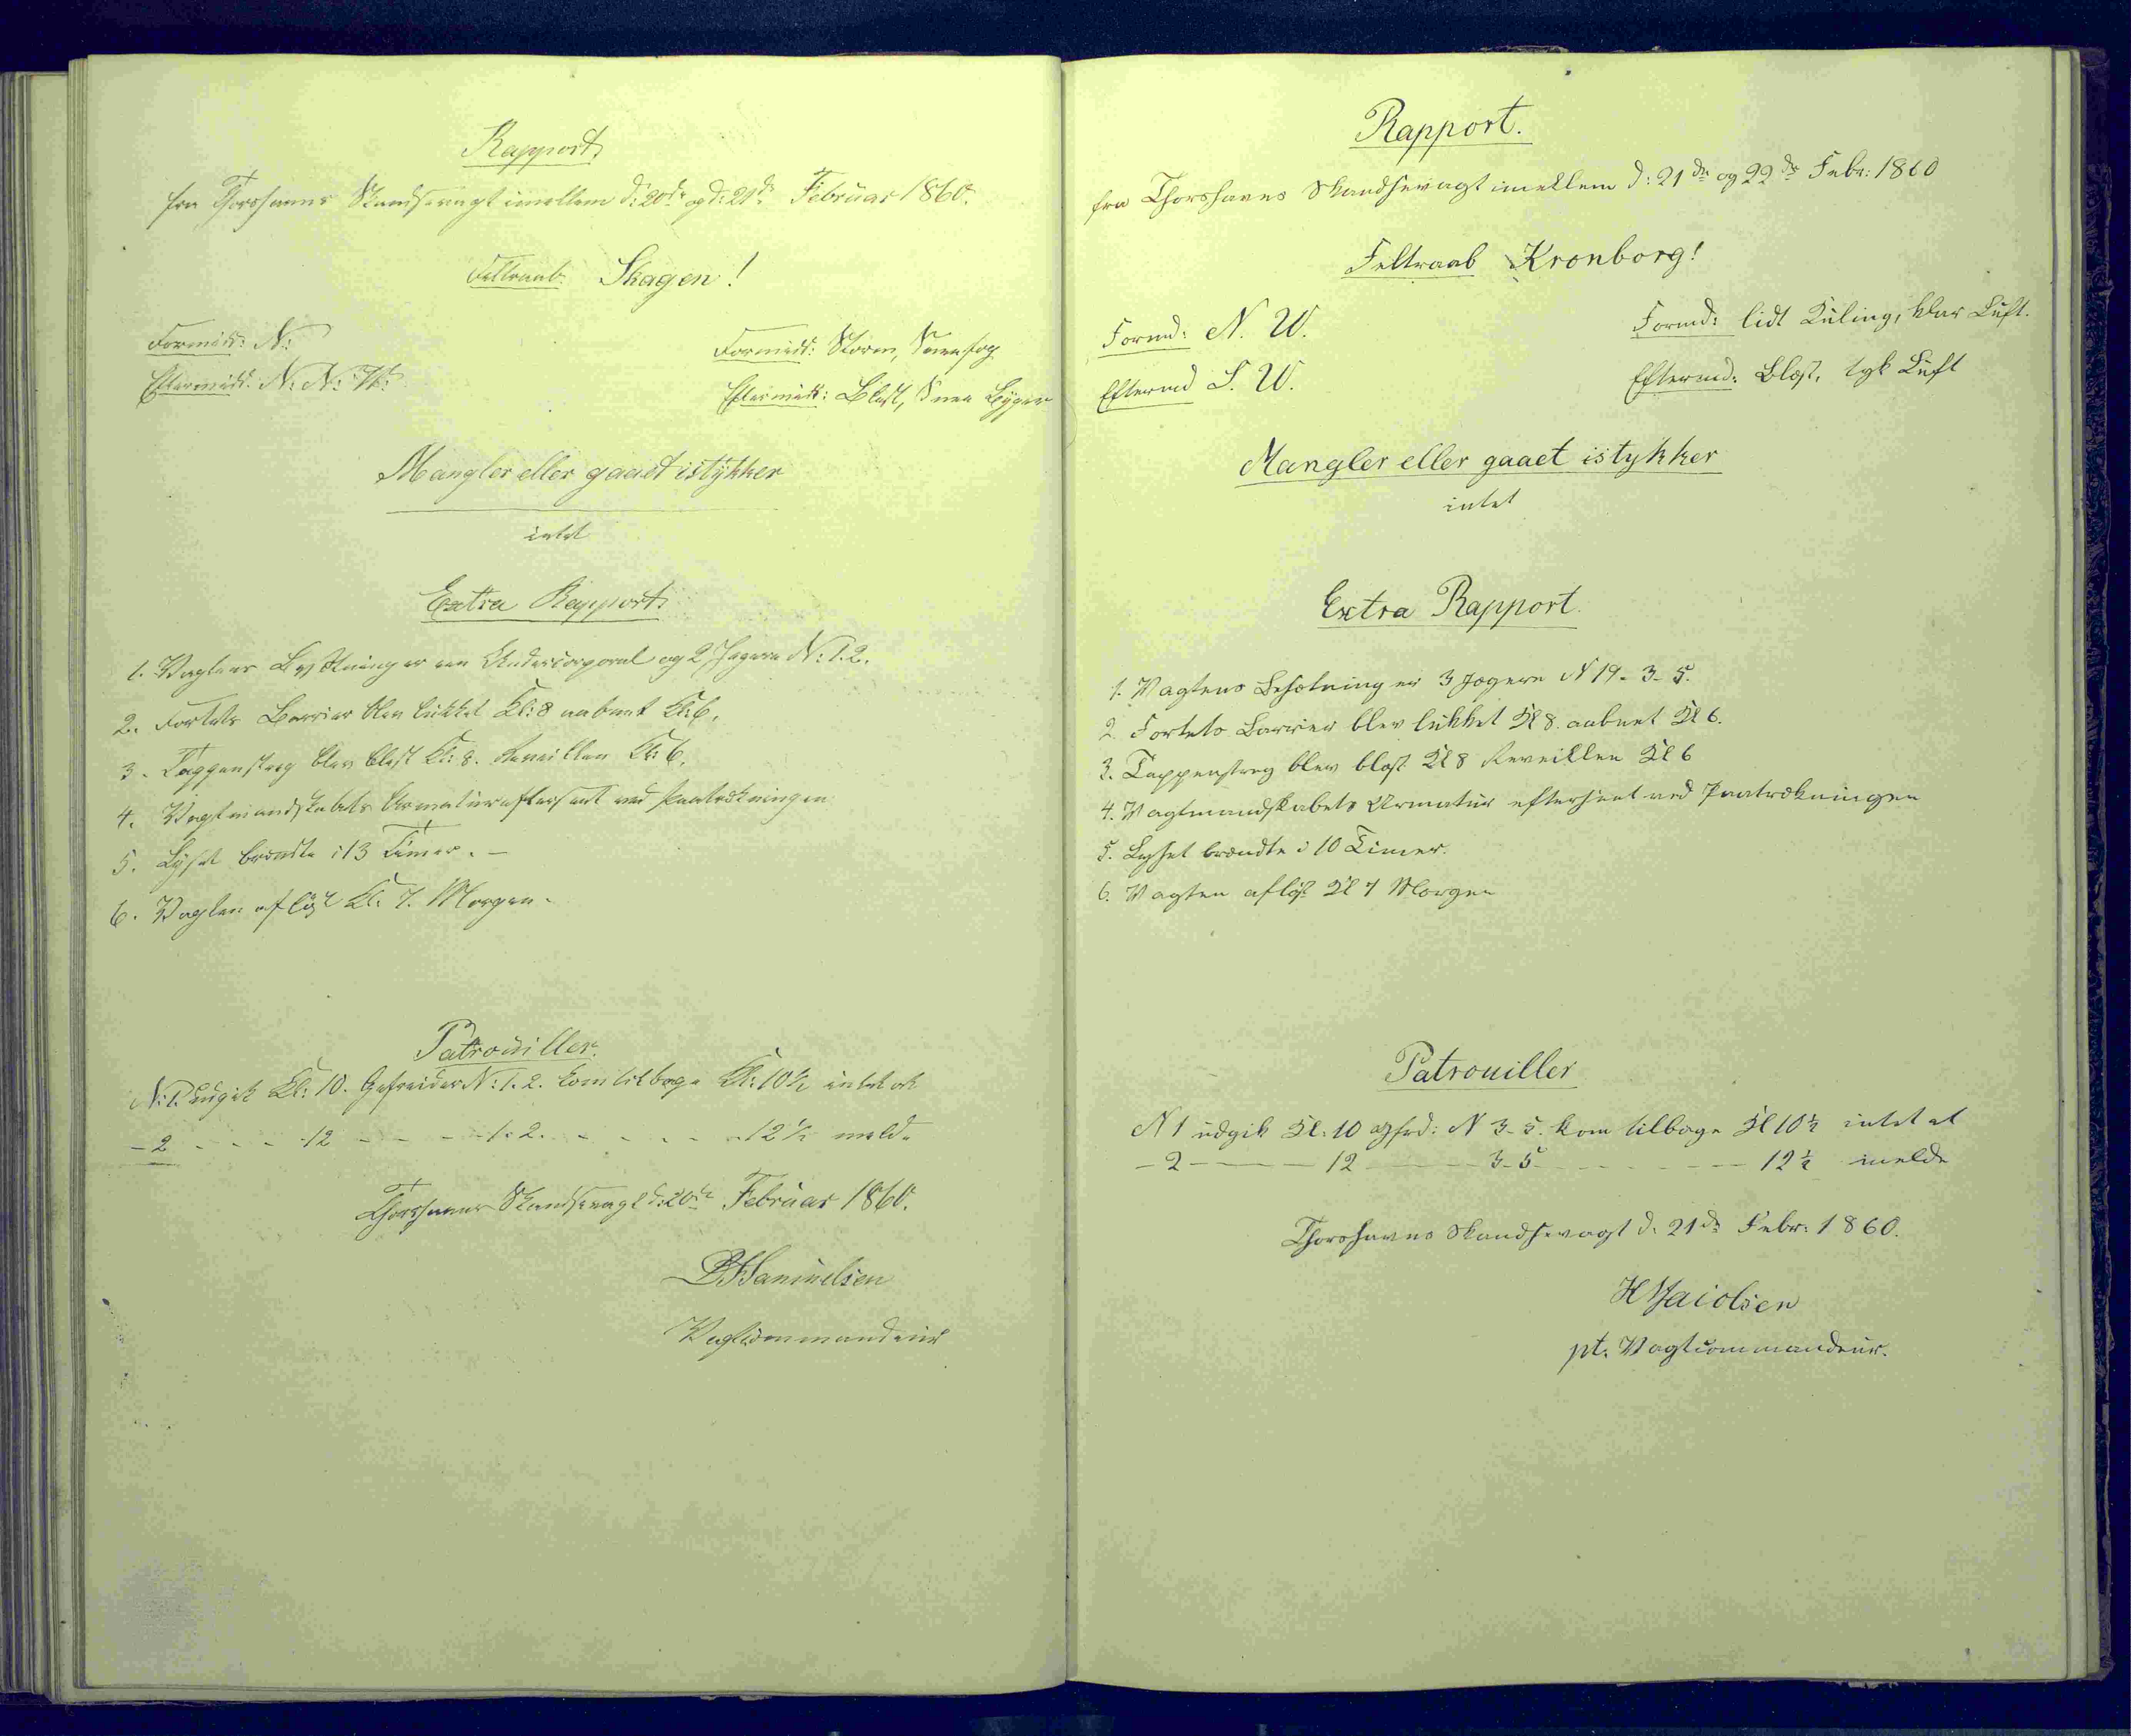 Rapport
fra Thorshavns Skandsevagt imellem d: 20de og d: 21de Februar 1860.
Feltraab: Skagen!
Formidd: N:
Eftermidd. N. N. W.
Formidd: Storm, Sneefog
Eftermidd: Blæst, Snee Byger
Mangler eller gaaet istykker
intet
Extra Rapport.
1. Vagtens Besættning er een Undercorporal og 2 Jægere N: 1. 2.
2. Fortets Barrier blev lukket Kl: 8 aabnet Kl: 6.
3. Tappenstreg blev blæst Kl: 8. Reveillen Kl: 6.
4. Vagtmandskabets Armatur efterseet ved Paatrækningen
5. Lyset brændte i 13 Timer. —
6. Vagten afløst Kl. 7. Morgen.
Patrouiller.
N: 1. udgik Kl: 10. Gefreider N: 1. 2. kom tilbage Kl: 10½ intet at
- 2 - - - 12 - - - 1. 2. - - - - - 12½ melde
Thorshavns Skandsevagt d: 20de Februar 1860.
Samuelsen
Vagtcommandeur
Rapport.
fra Thorshavns Skandsevagt imellem d: 21de og 22de Febr: 1860
Feltraab Kronborg!
Formd: N. W.
Eftermd S. W.
Formd: lidt Kuling, klar Luft.
Eftermd: Blæst, tyk Luft
Mangler eller gaaet istykker
intet
Extra Rapport.
1. Vagtens Besætning er 3 Jægere N 19- 3- 5.
2. Fortets Barrier blev lukket Kl 8. aabnet Kl 6.
3. Tappenstreg blev blæst Kl 8 Reveillen Kl 6
4. Vagtmandskabets Armatur efterseet ved Paatrækningen
5. Lyset brændte i 10 Timer.
6. Vagten afløst Kl 7 Morgen
Patrouiller
N 1 udgik Kl. 10 N 3- 5. kom tilbage Kl 10½ intet at
- 2 — 12 — 3- 5 - - - - 12½ melde
Thorshavns Skandsevagt d. 21de Febr: 1860.
pt. Vagtcommandeur.